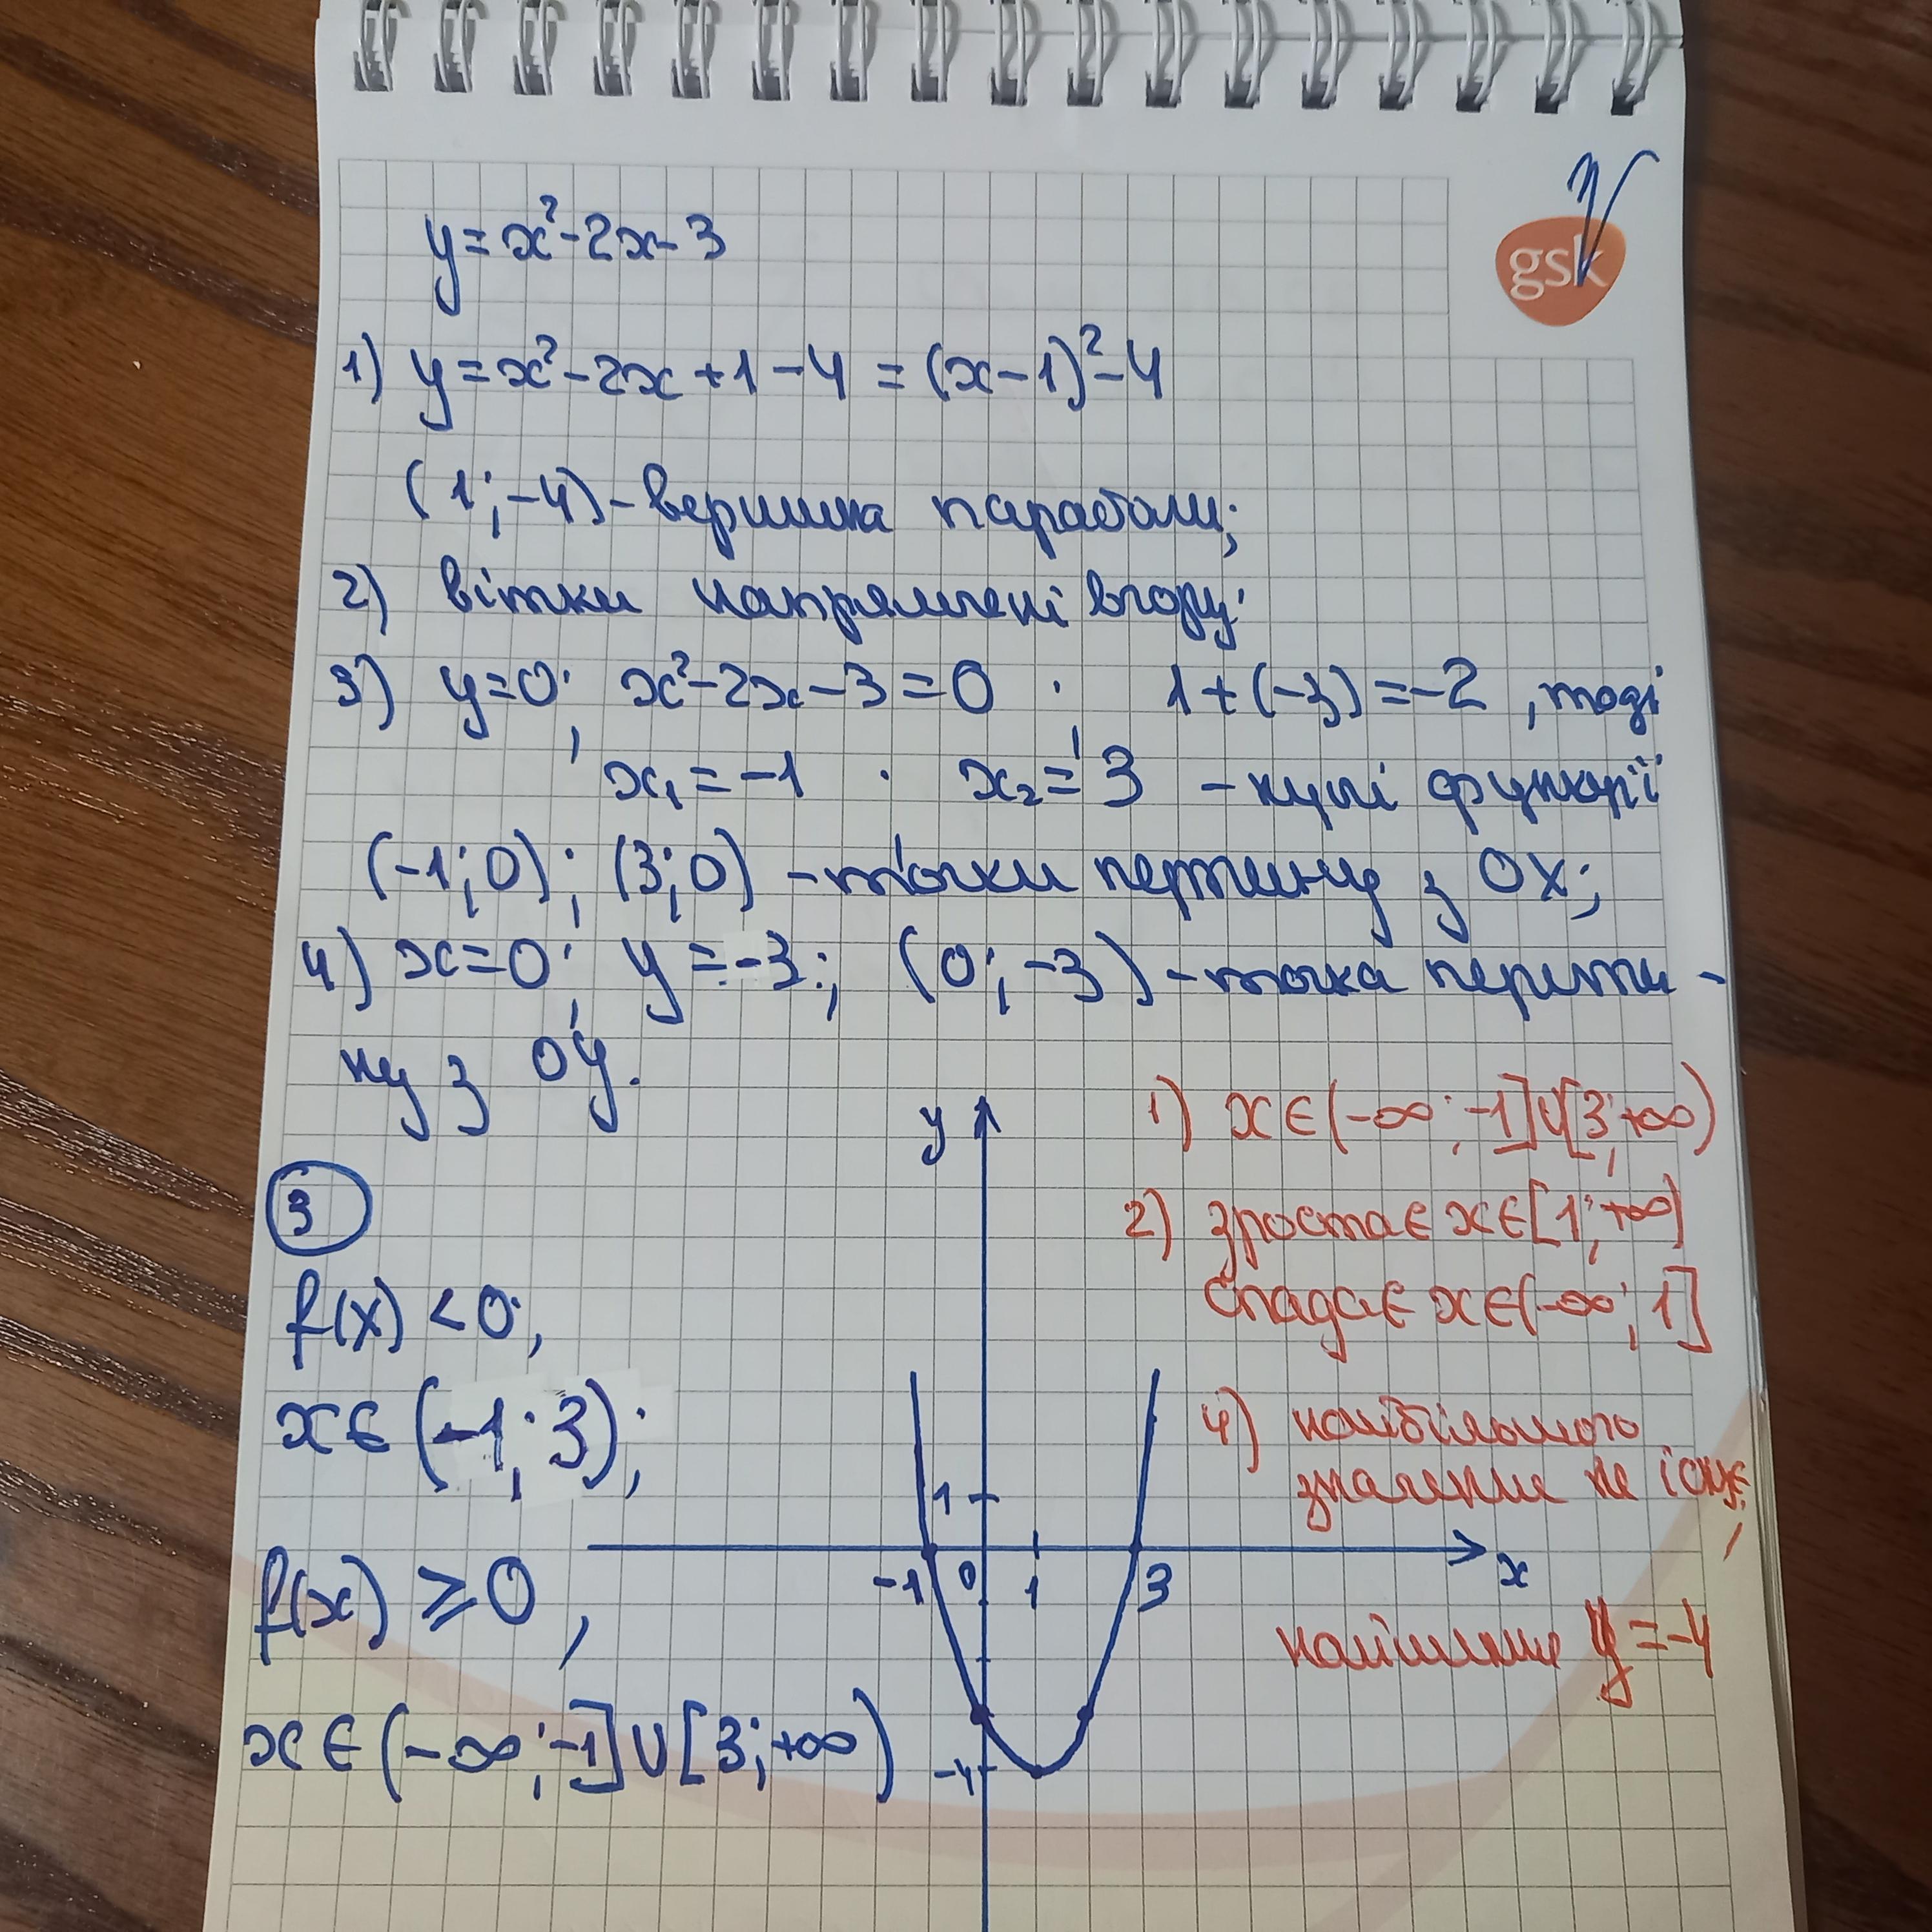 gsk
y = x² - 2x - 3
1) y = x² - 2x + 1 - 4 = (x - 1)² - 4
(1; -4) - вершина параболи;
2) вітки напрямлені вгору;
3) y = 0; x² - 2x - 3 = 0; 1 + (-3) = -2, тоді
x₁ = -1; x₂ = 3 - нулі функції
(-1; 0); (3; 0) - точки перетину з OX;
4) x = 0; y = -3; (0; -3) - точка перети-
ну з OY.
y
1) x ∈ (-∞; -1] ∪ [3; +∞)
3
2) зростає x ∈ [1; +∞)
спадає x ∈ (-∞; 1]
f(x) < 0;
x ∈ (-1; 3);
4) найбільшого
значення не існує;
1
f(x) ≥ 0,
-1 0 1 3 x
найменше y = -4
x ∈ (-∞; -1] ∪ [3; +∞)
-4